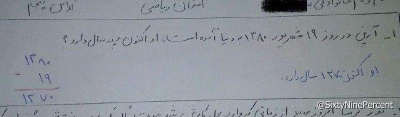 امتحان ریاضی
کلاس پنجم
۱- آرین در روز ۱۹ شهریور ۱۳۸۰ به دنیا آمده است. او اکنون چند سال دارد؟
او اکنون ۱۳۷۰ سال دارد.
۱۳۸۰
- ۱۹
۱۳۷۰
@SixtyNinePercent